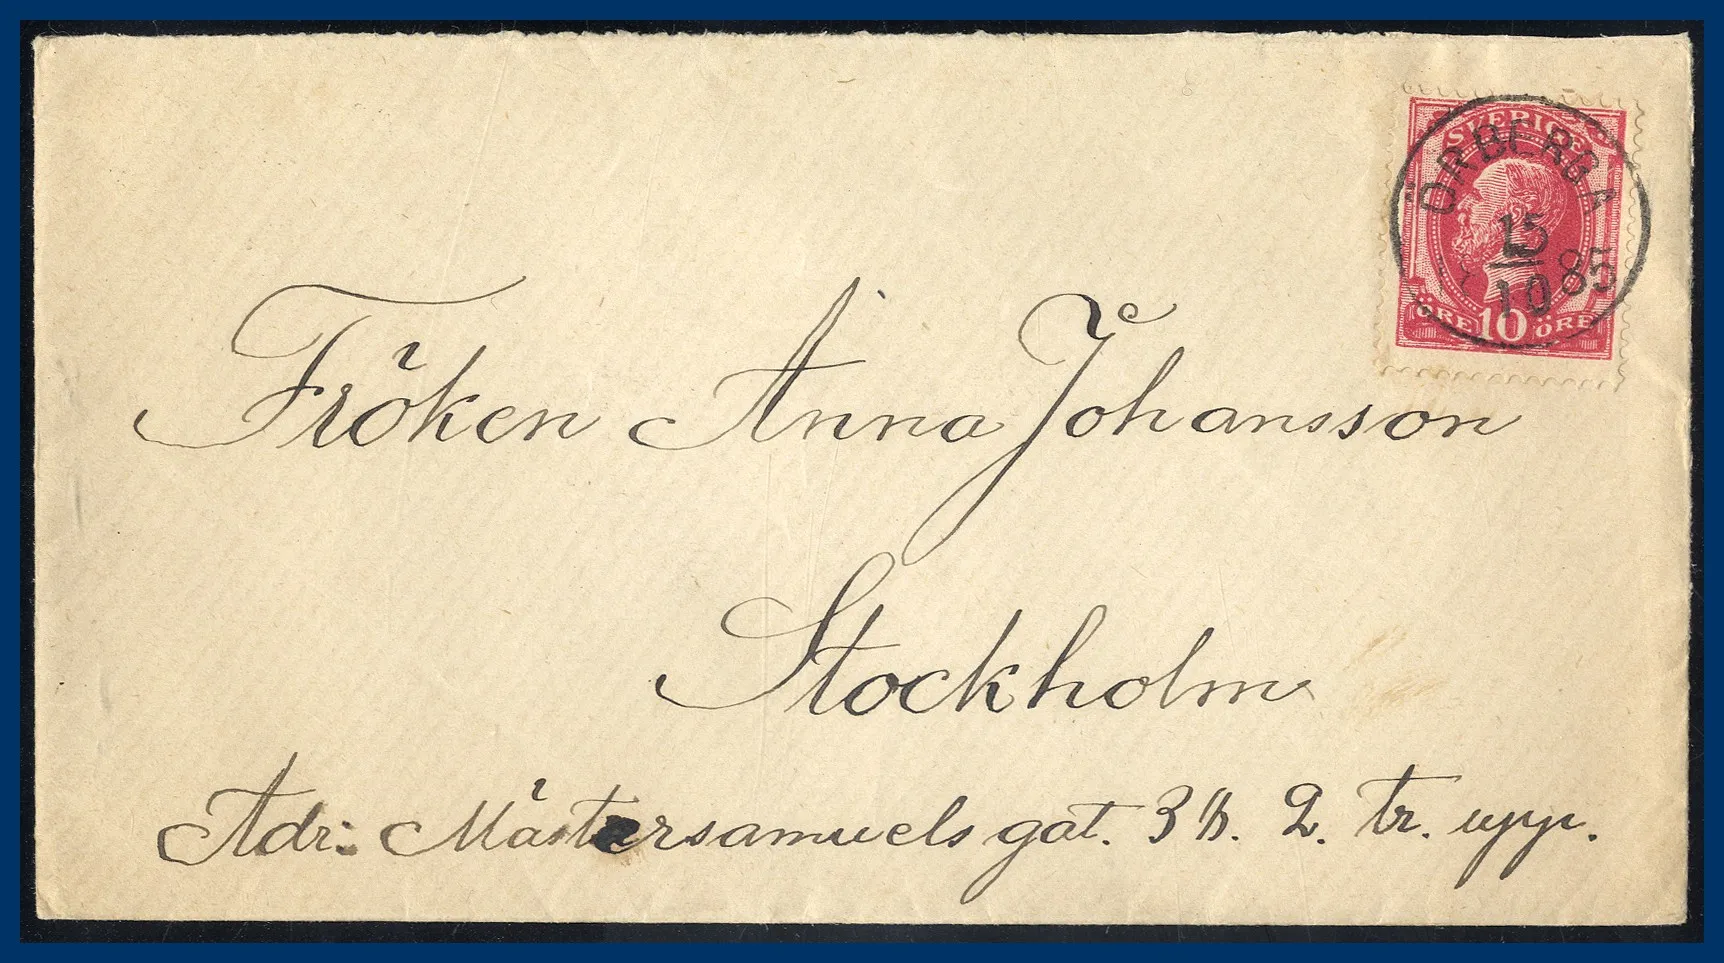 SVERIGE
ÖRBERGA
15
10 85
ÖRE 10 ÖRE
Fröken Anna Johansson
Stockholm
Adr: Mästersamuels gat. 3 2. tr. upp.